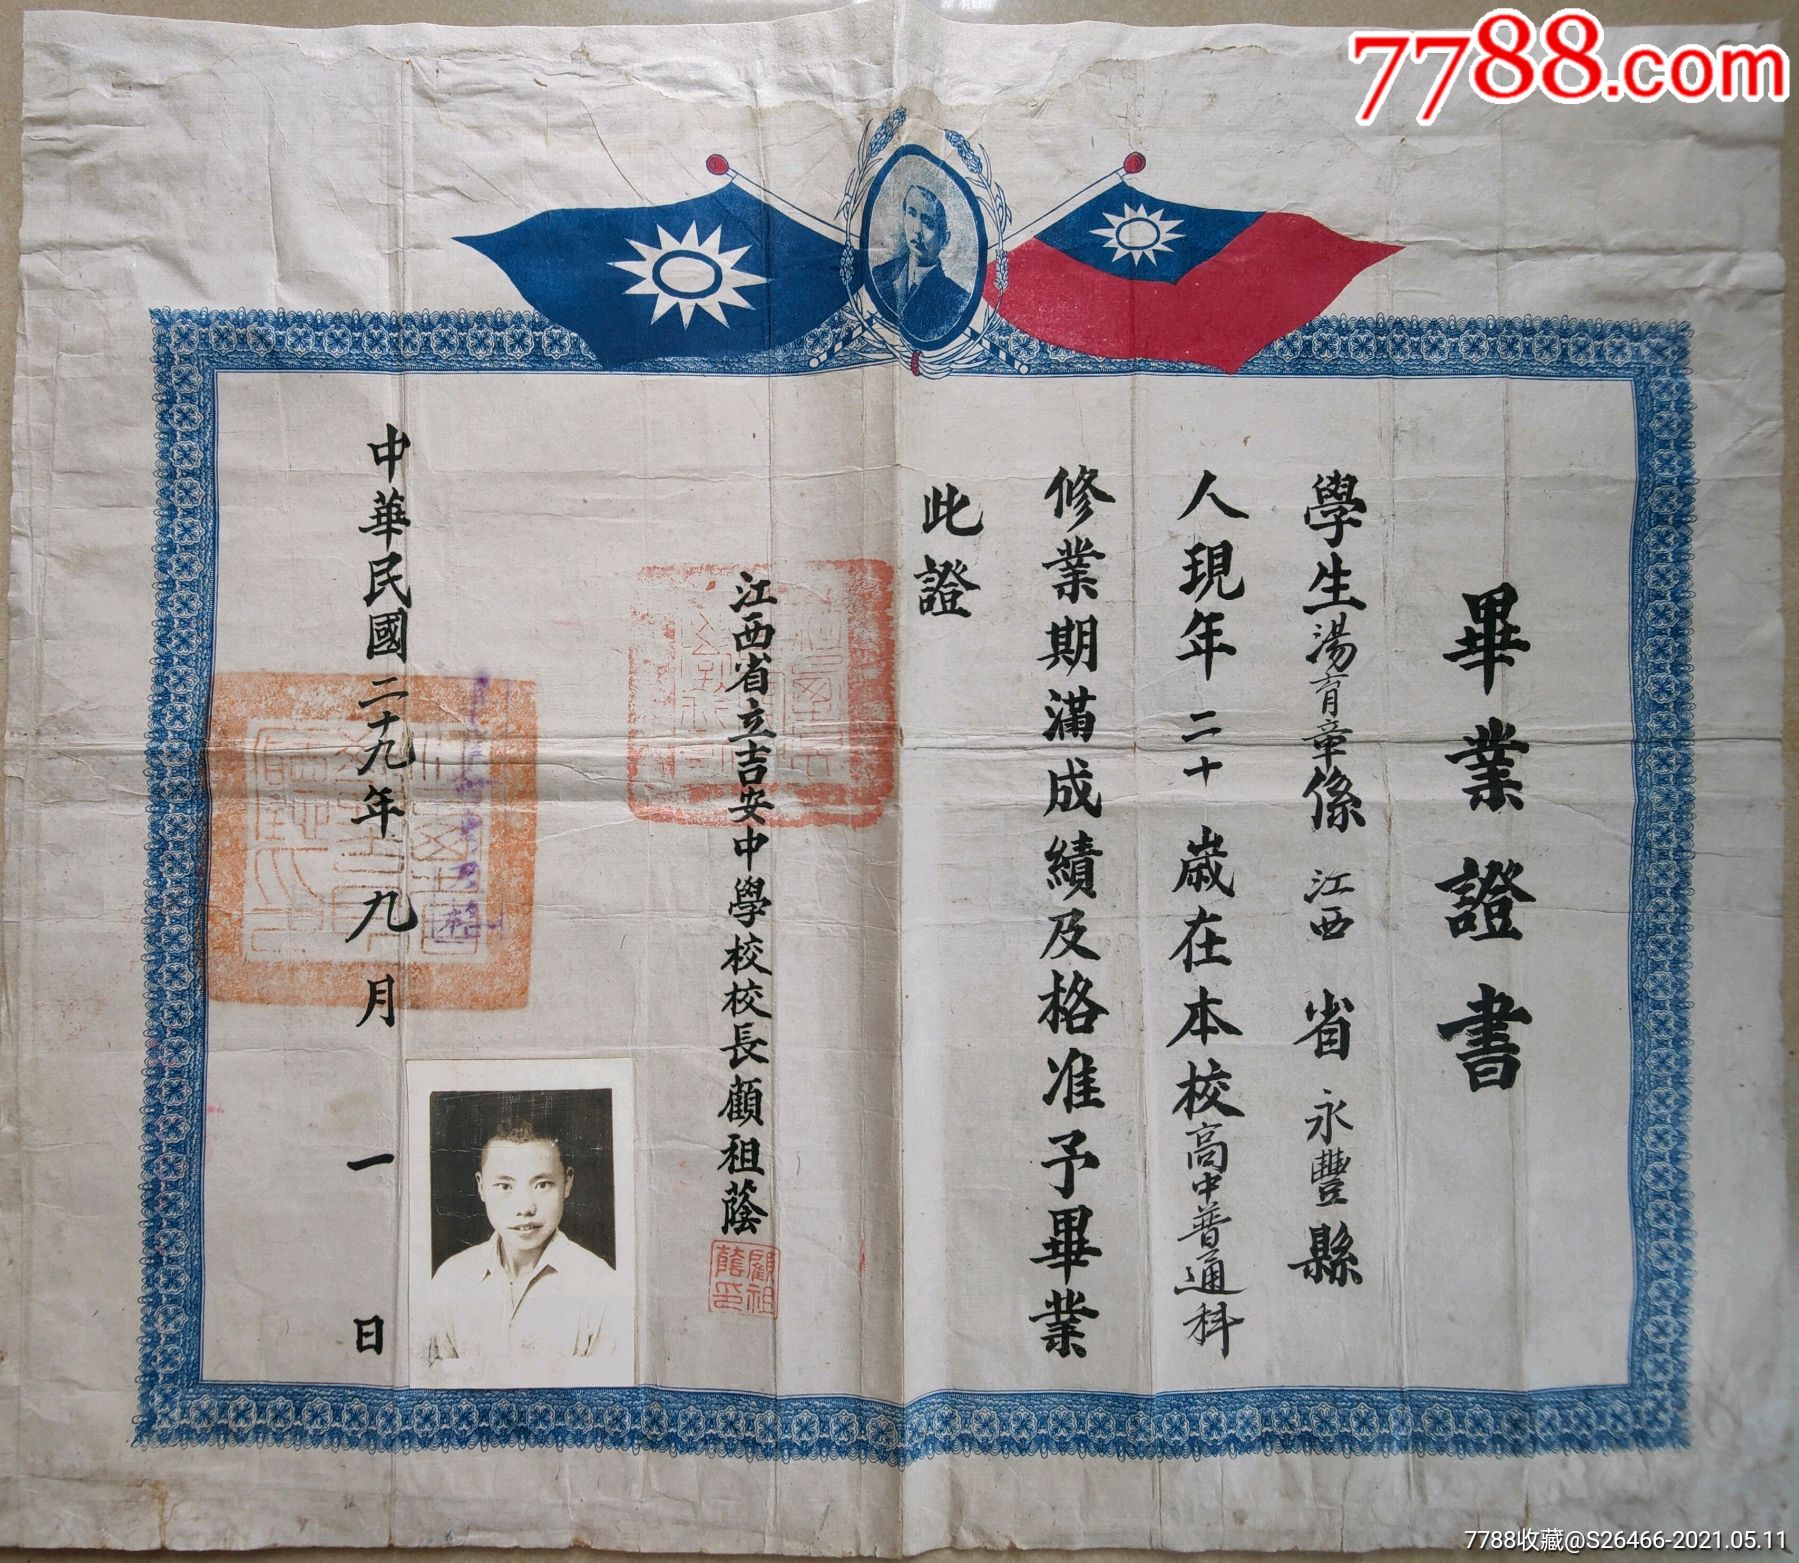 7788.com
畢業證書
學生湯育章係江西省永豐縣
人現年二十歲在本校高中普通科
修業期滿成績及格准予畢業
此證
江西省立吉安中學校校長顧祖蔭
顧祖蔭印
中華民國二十九年九月一日
7788收藏@S26466-2021.05.11